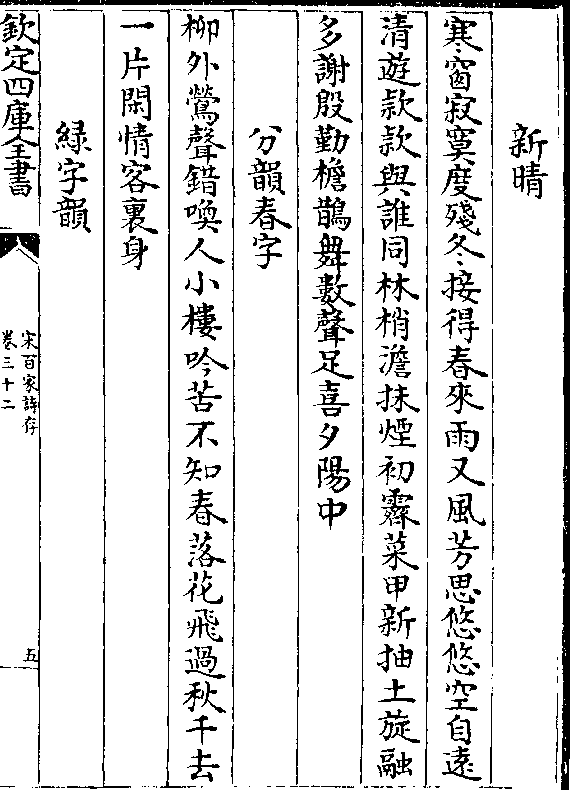 新晴
寒窗寂寞度殘冬接得春來雨又風芳思悠悠空自遠
清遊款款與誰同林梢澹抹煙初霽菜甲新抽土旋融
多謝殷勤檐鵲舞數聲足喜夕陽中
分韻春字
柳外鶯聲錯喚人小樓吟苦不知春落花飛過秋千去
一片閑情客裏身
綠字韻
欽定四庫全書
宋百家詩存
卷三十二
五